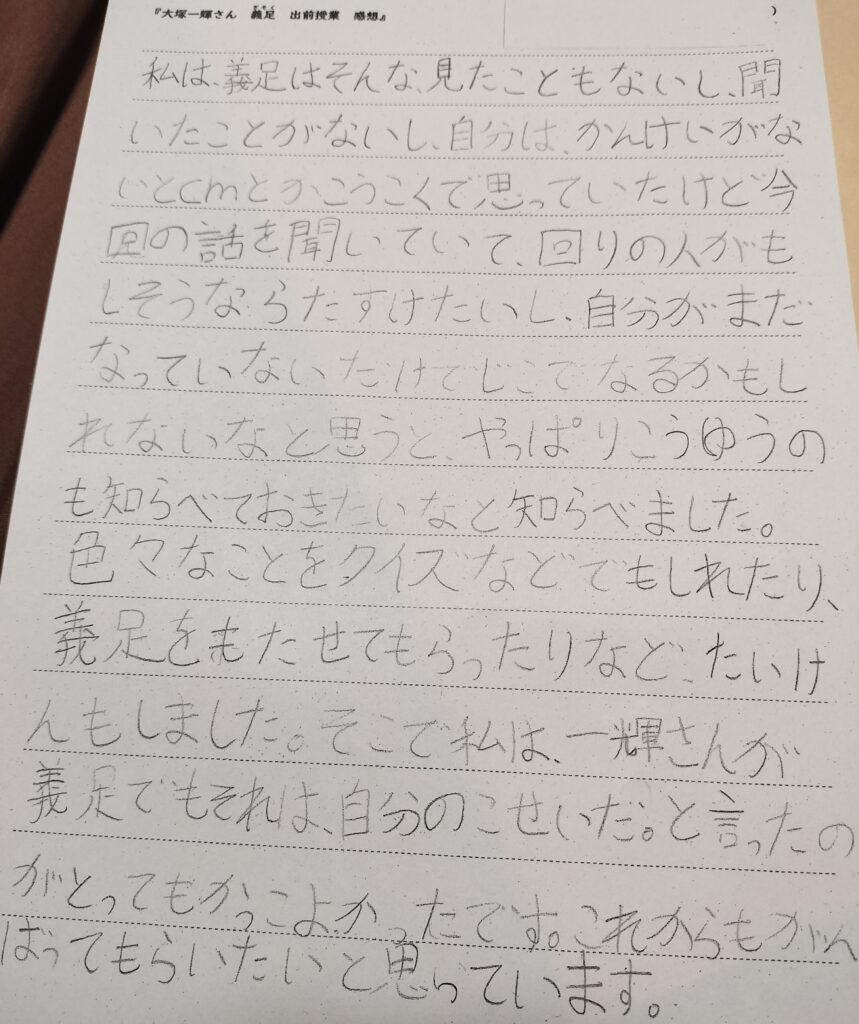 『大塚一輝さん 義足 出前授業 感想』 )
ぎそく
私は、義足はそんな、見たこともないし、聞
いたことがないし、自分は、かんけいがな
いとcmとかこうこくで思っていたけど今
回の話を聞いていて、回りの人がも
しそうならたすけたいし、自分がまだ
なっていないだけでじこでなるかもし
れないなと思うと、やっぱりこうゆうの
も知らべておきたいなと知らべました。
色々なことをクイズなどでもしれたり、
義足をもたせてもらったりなど、たいけ
んもしました。そこで私は、一輝さんが
義足でもそれは、自分のこせいだ。と言ったの
がとってもかっこよかったです。これからもがん
ばってもらいたいと思っています。